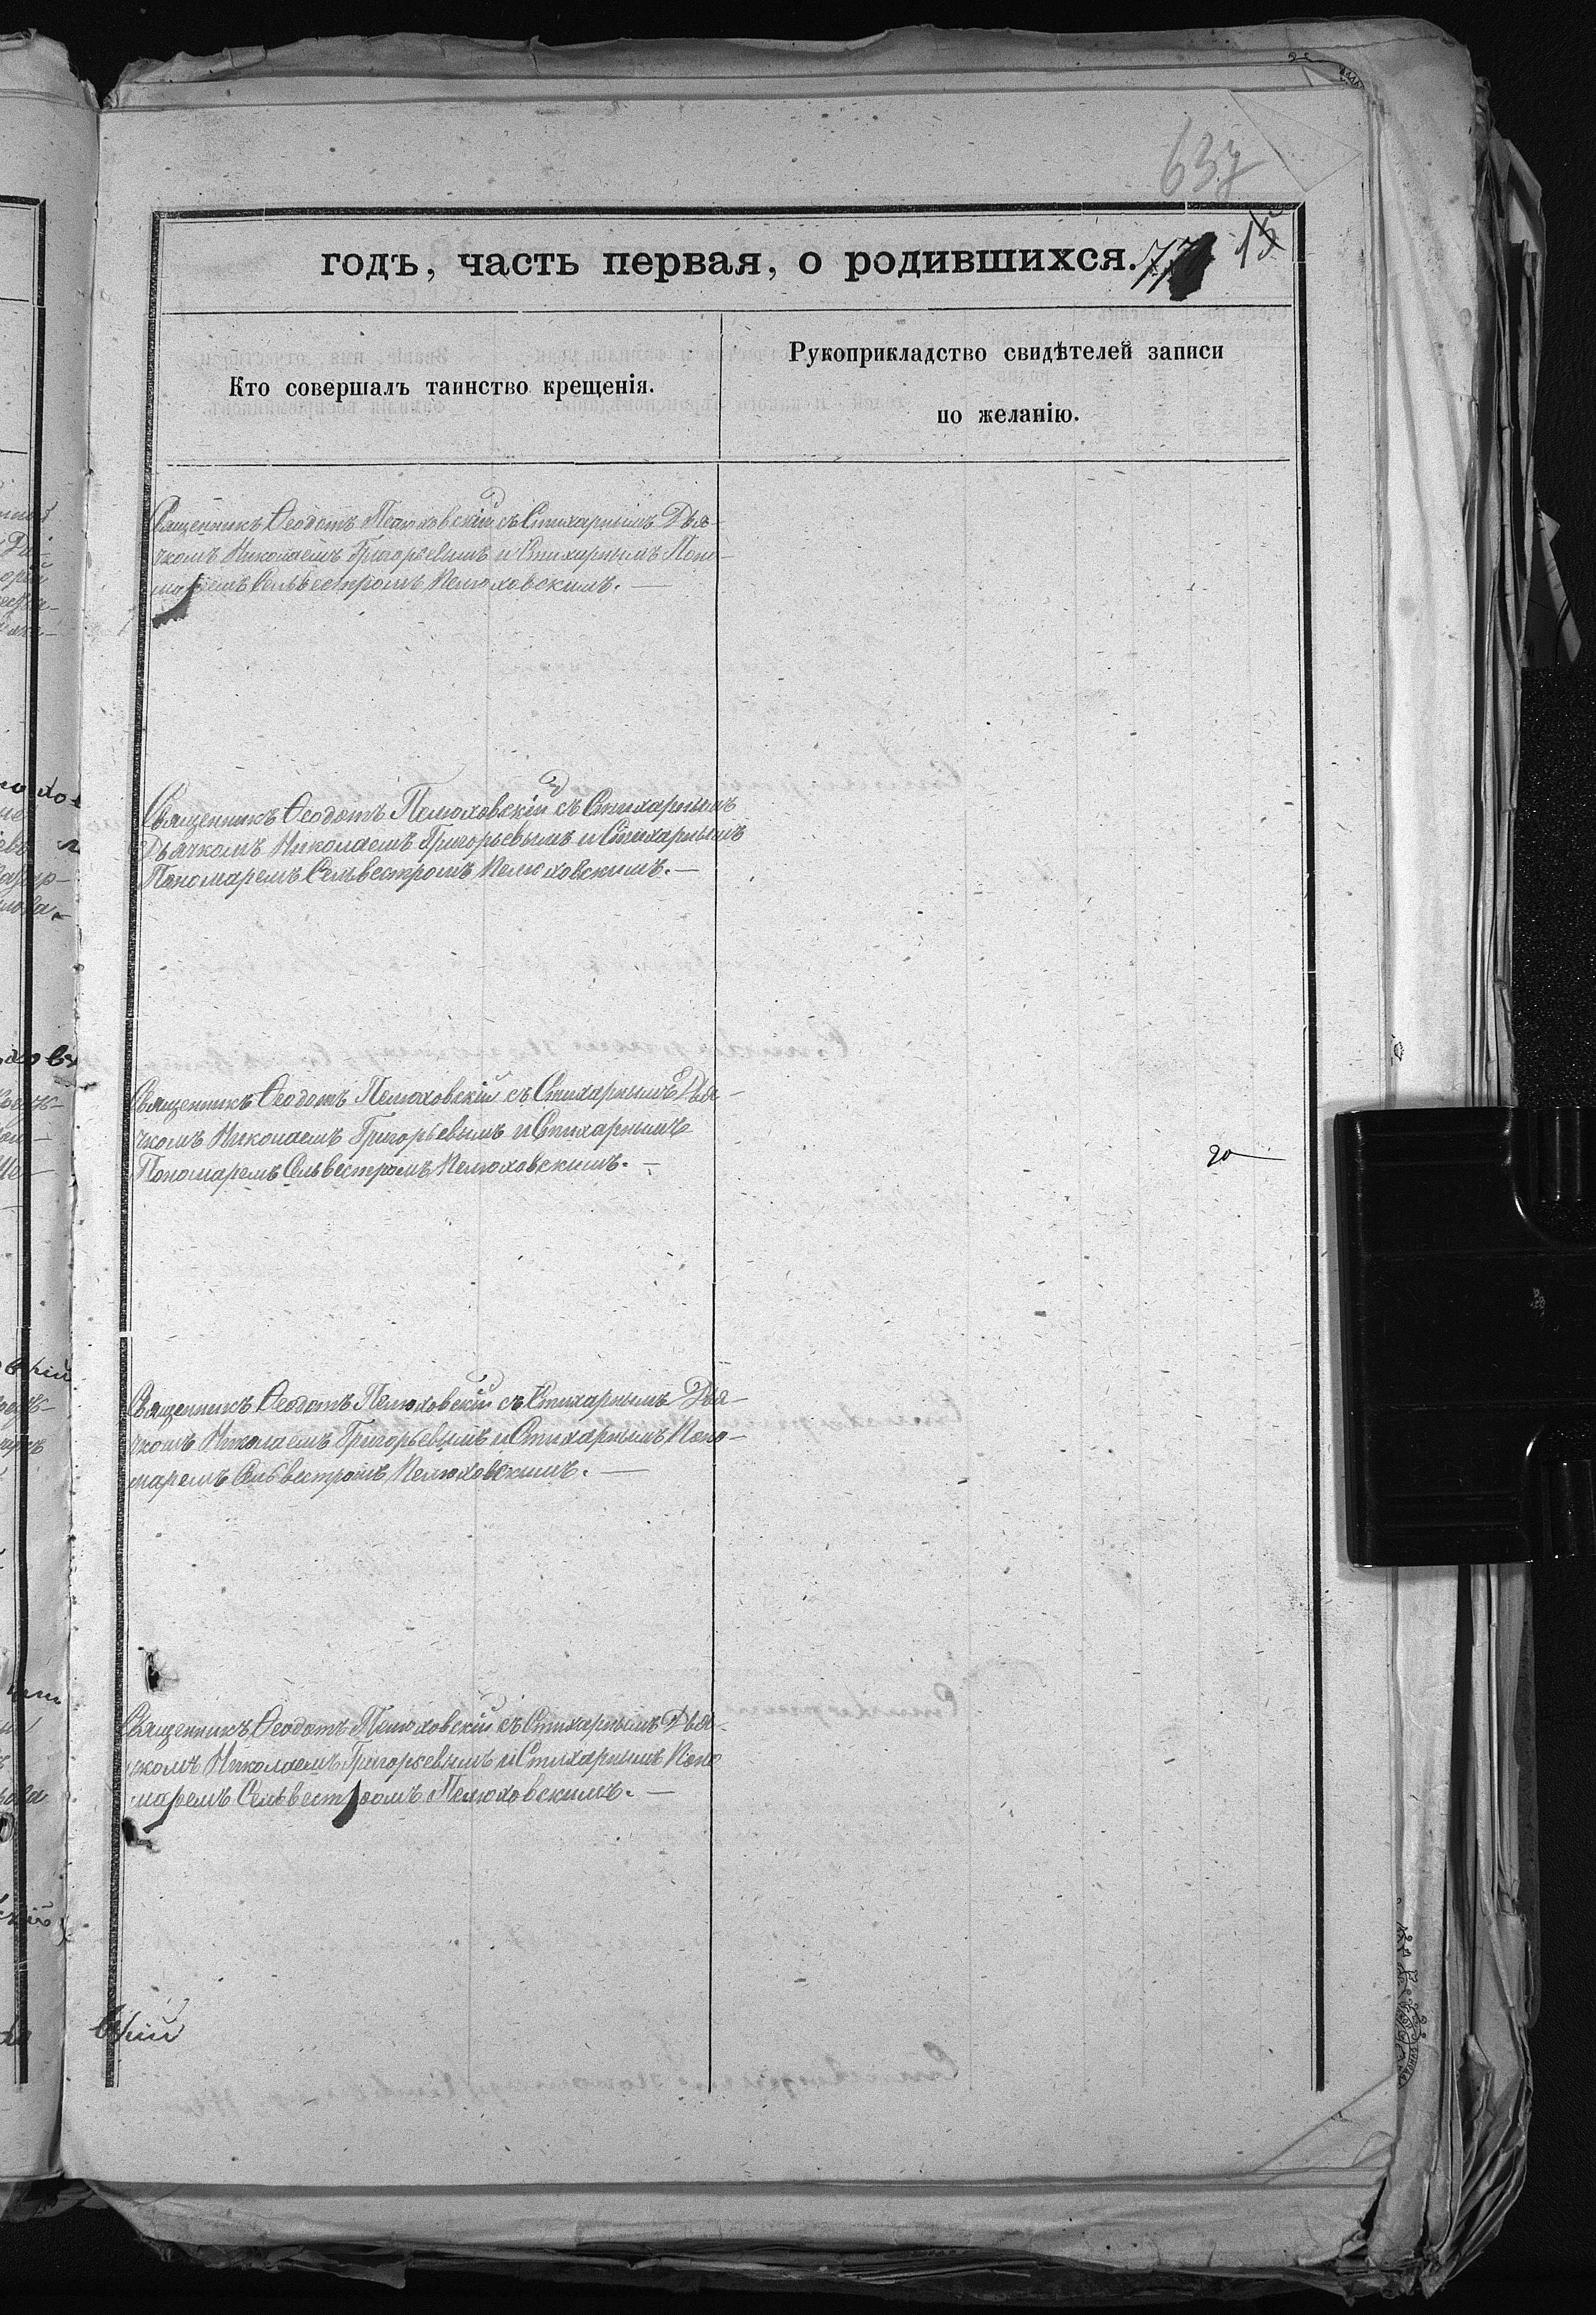 637
годъ, часть первая, о родившихся. 77 15
Кто совершалъ таинство крещенія.
Рукоприкладство свидѣтелей записи
по желанію.
Священникъ Ѳеодотъ Пелюховскій съ Стихарнымъ Дья-
чкомъ Николаемъ Григорьевымъ и Стихарнымъ Поно-
маремъ Сельвестромъ Пелюховскимъ. —
Священникъ Ѳеодотъ Пелюховскій съ Стихарнымъ
Дьячкомъ Николаемъ Григорьевымъ и Стихарнымъ
Пономаремъ Сельвестромъ Пелюховскимъ. —
Священникъ Ѳеодотъ Пелюховскій съ Стихарнымъ Дья-
чкомъ Николаемъ Григорьевымъ и Стихарнымъ
Пономаремъ Сельвестромъ Пелюховскимъ. —
Священникъ Ѳеодотъ Пелюховскій съ Стихарнымъ Дья-
чкомъ Николаемъ Григорьевымъ и Стихарнымъ Поно-
маремъ Сельвестромъ Пелюховскимъ. —
Священникъ Ѳеодотъ Пелюховскій съ Стихарнымъ Дья-
чкомъ Николаемъ Григорьевымъ и Стихарнымъ Поно
маремъ Сельвестромъ Пелюховскимъ. —